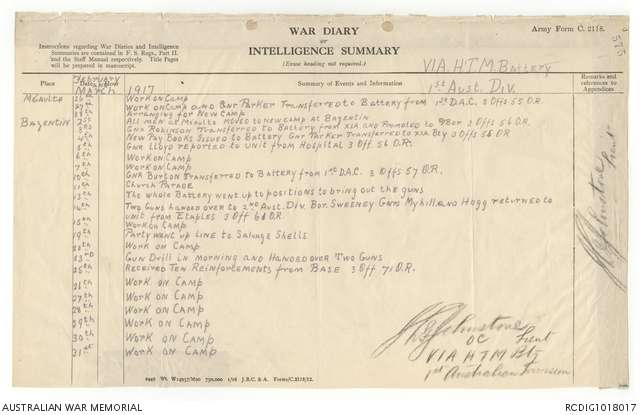 WAR DIARY
or
INTELLIGENCE SUMMARY
(Erase heading not required.)
Army Form C. 2118.
Instructions regarding War Diaries and Intelligence
Summaries are contained in F. S. Regs., Part II.
and the Staff Manual respectively. Title Pages
will be prepared in manuscript.
VIA. H.T.M. Battery
1st Aust. Div.
Place
February
March 1917
Summary of Events and Information
Remarks and
references to
Appendices
Méaulte 26th Work on Camp
27th Work on Camp and Gnr Parker Transferred to Battery from 1st D.A.C. 3 Offs 55 O.R.
28th Arranging for New Camp
Bazentin 2nd All men at Méaulte moved to new camp at Bazentin
3rd Gnr Robinson Transferred to Battery from X1A and Promoted to Bdr 3 Offs 56 O.R.
4th New Pay Books Issued to Battery Gnr Parker Transferred to X1A Bty 3 Offs 56 O.R
5th Gnr Lloyd reported to unit from Hospital 3 Off 56 O.R.
6th Work on Camp
7th Work on Camp
10th Gnr Burton Transferred to Battery from 1st D.A.C. 3 Offs 57 O.R.
11th Church Parade
13th The whole Battery went up to positions to bring out the guns
14th Two Guns handed over to 2nd Aust. Div. Bdr. Sweeney Gnrs Myhill and Hogg returned to
unit from Etaples 3 Off 60 O.R.
15th Work on Camp
19th Party went up Line to Salvage Shells
20th Work on Camp
23rd Gun Drill in morning and Handed over Two Guns
25th Received Ten Reinforcements from Base 3 Off 71 O.R.
26th Work on Camp
27th Work on Camp
28th Work on Camp
29th Work on Camp
30th Work on Camp
31st Work on Camp
Johnstone
Lieut
OC
VIA HTM Bty
1st Australian Division
Johnstone Lieut
J.B.C. & A. Forms/C.2118/12.
AUSTRALIAN WAR MEMORIAL
RCDIG1018017